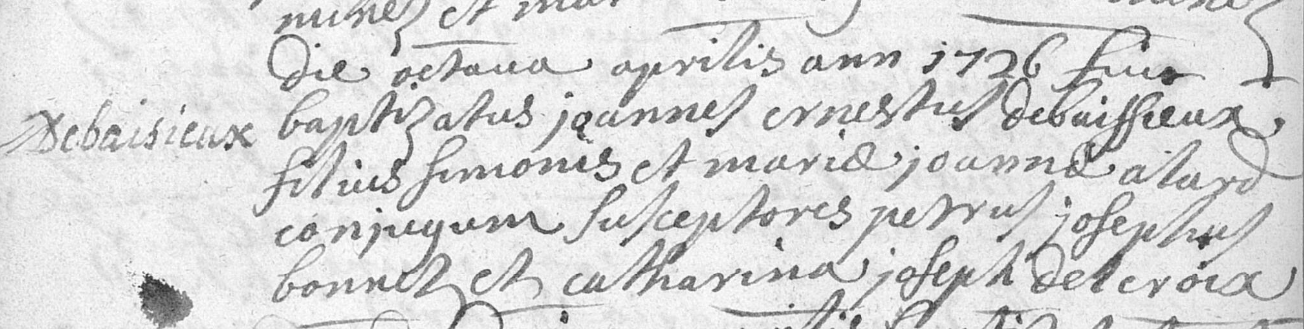 die octaua aprilis ann 1726 fuit
Debaisieux
baptizatus joannes ernestus debaissieux
filius simonis et mariæ joannæ alard
conjugum susceptores petrus josephus
bonnet et catharina joseph delcroix